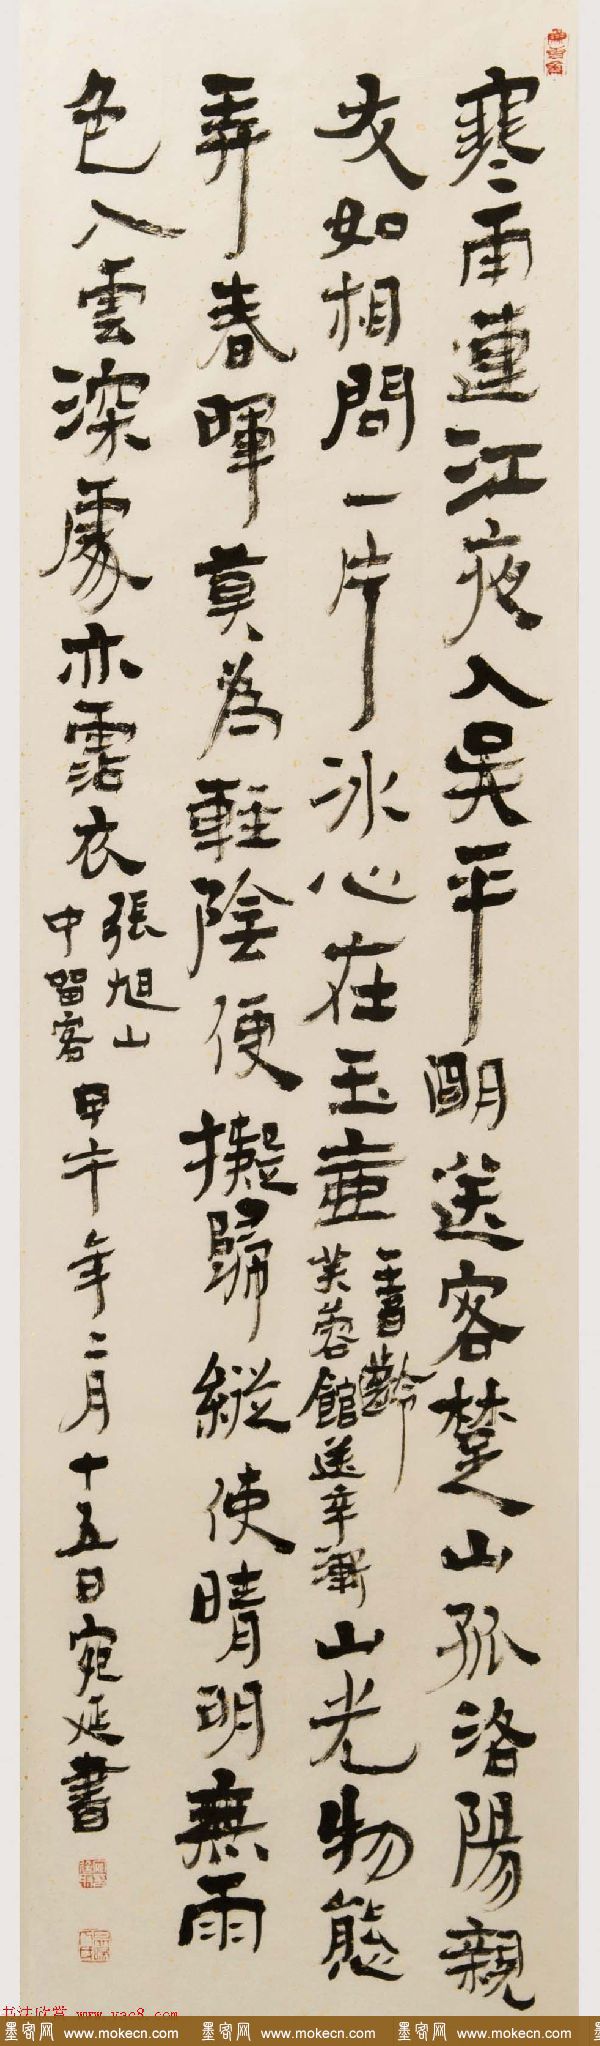 寒雨連江夜入吴平明送客楚山孤洛陽親
友如相問一片冰心在玉壺王昌齡芙蓉館送辛漸山光物態
弄春暉莫為輕陰便擬歸縱使晴明無雨
色入雲深處亦霑衣張旭山中留客甲午年二月十五日宛延書
书法欣赏 www.yac8.com
墨客网 www.mokecn.com 墨客网 www.mokecn.com 墨客网 www.mokecn.com